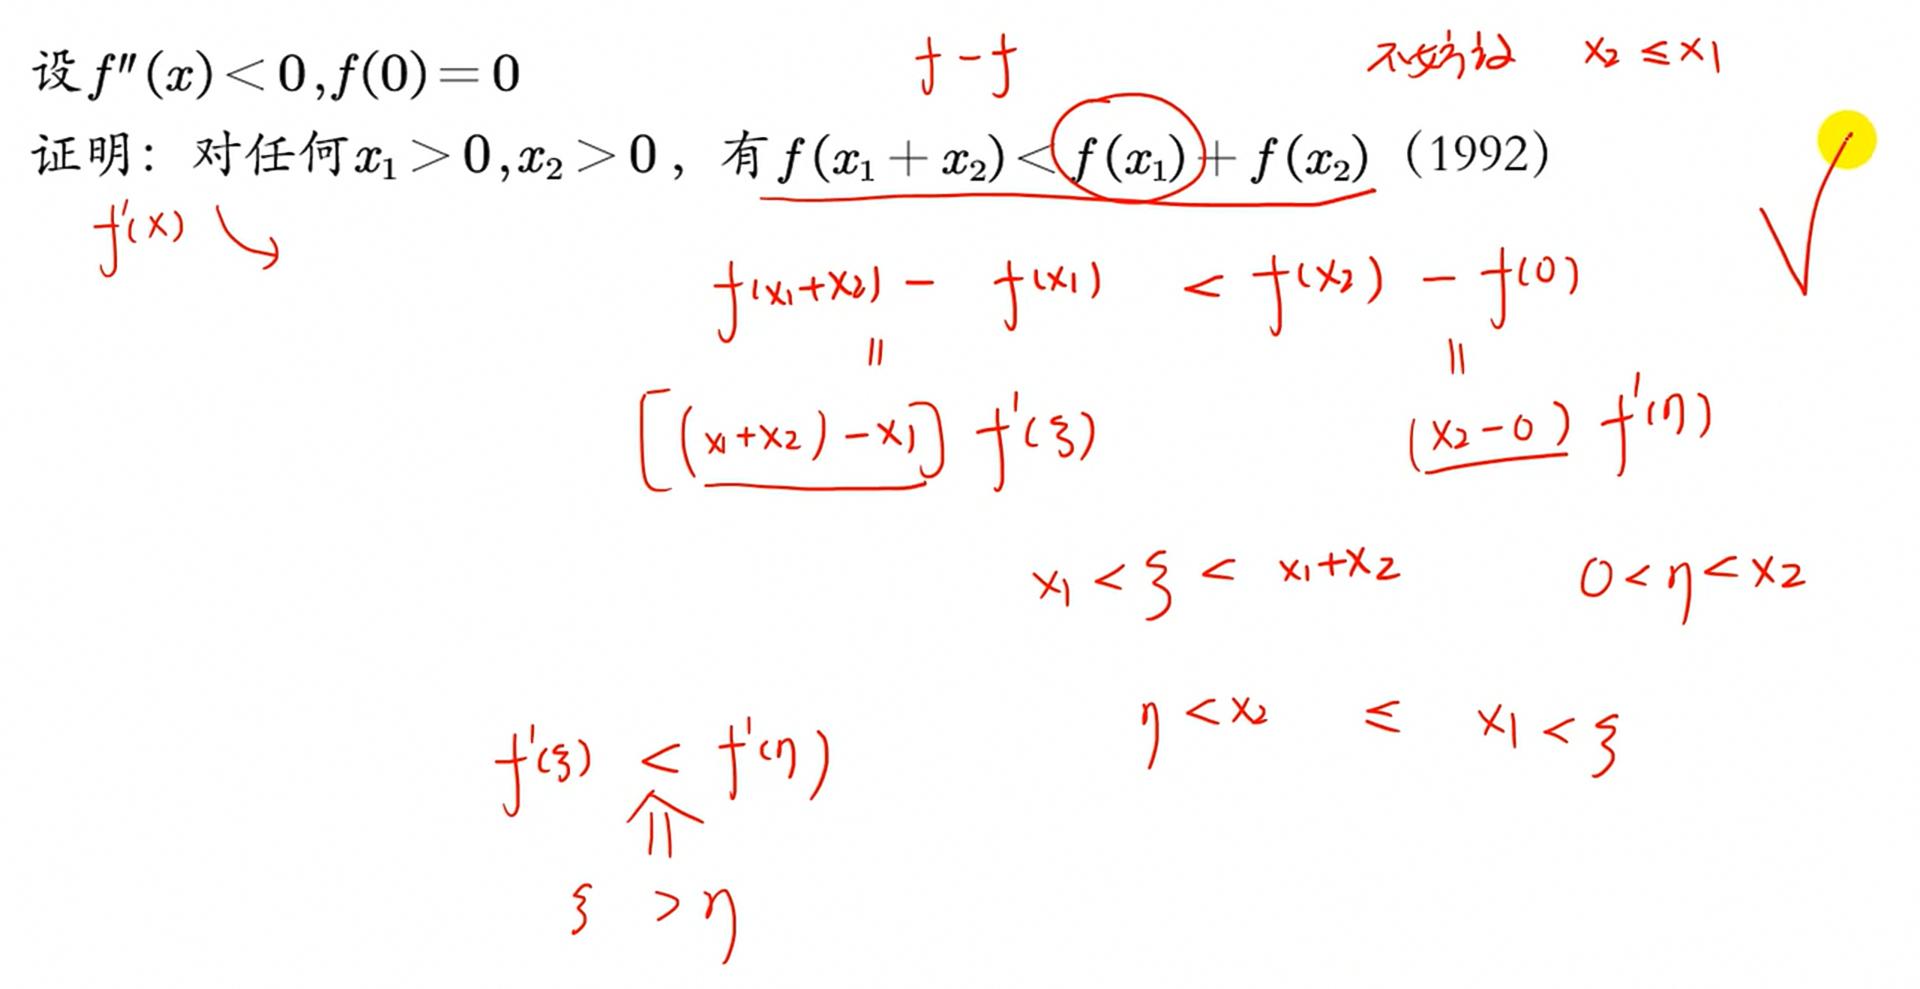 f - f 不妨设 x₂ ≤ x₁
设 f″(x) < 0, f(0) = 0
证明：对任何 x₁ > 0, x₂ > 0，有 f(x₁ + x₂) < f(x₁) + f(x₂)（1992）
f′(x) ↘
f(x₁+x₂) - f(x₁) < f(x₂) - f(0)
= =
[(x₁+x₂) - x₁] f′(ξ) (x₂-0) f′(η)
x₁ < ξ < x₁+x₂ 0 < η < x₂
η < x₂ ≤ x₁ < ξ
f′(ξ) < f′(η)
⇑
ξ > η